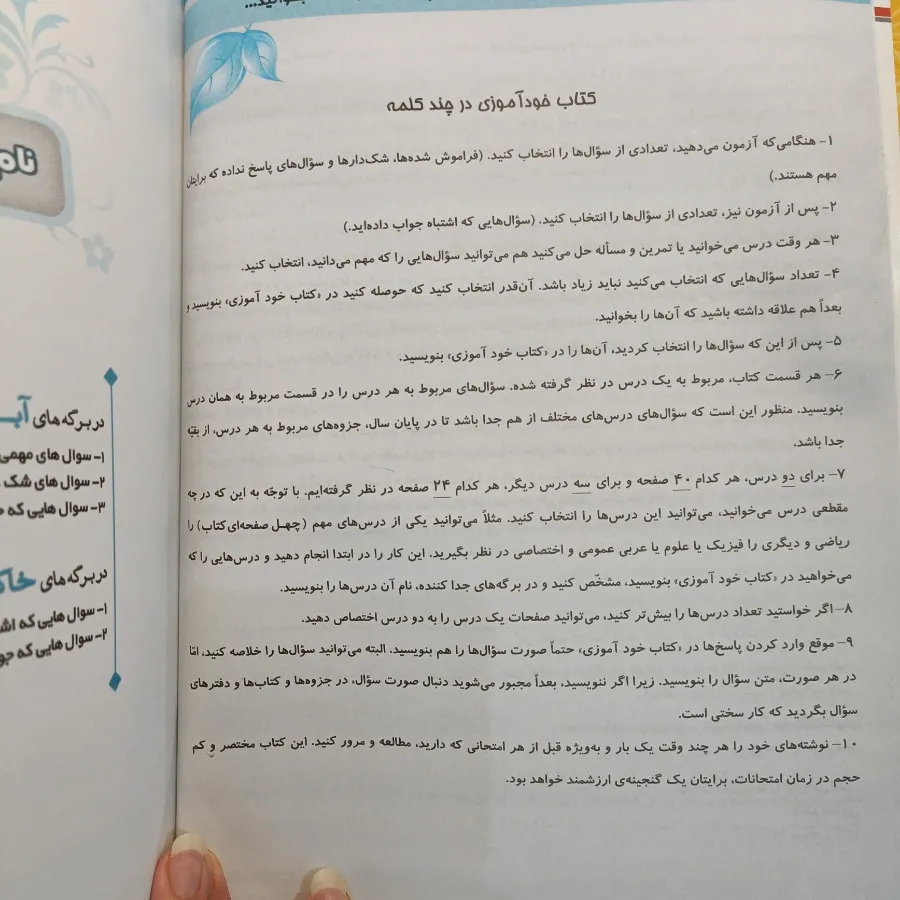 کتاب خودآموزی در چند کلمه
۱- هنگامی‌که آزمون می‌دهید، تعدادی از سؤال‌ها را انتخاب کنید. (فراموش شده‌ها، شک‌دارها و سؤال‌های پاسخ نداده که برایتان
مهم هستند.)
۲- پس از آزمون نیز، تعدادی از سؤال‌ها را انتخاب کنید. (سؤال‌هایی که اشتباه جواب داده‌اید.)
۳- هر وقت درس می‌خوانید یا تمرین و مسأله حل می‌کنید هم می‌توانید سؤال‌هایی را که مهم می‌دانید، انتخاب کنید.
۴- تعداد سؤال‌هایی که انتخاب می‌کنید نباید زیاد باشد. آن‌قدر انتخاب کنید که حوصله کنید در «کتاب خود آموزی» بنویسید و
بعداً هم علاقه داشته باشید که آن‌ها را بخوانید.
۵- پس از این که سؤال‌ها را انتخاب کردید، آن‌ها را در «کتاب خود آموزی» بنویسید.
۶- هر قسمت کتاب، مربوط به یک درس در نظر گرفته شده. سؤال‌های مربوط به هر درس را در قسمت مربوط به همان درس
بنویسید. منظور این است که سؤال‌های درس‌های مختلف از هم جدا باشد تا در پایان سال، جزوه‌های مربوط به هر درس، از بقیه
جدا باشد.
۷- برای دو درس، هر کدام ۴۰ صفحه و برای سه درس دیگر، هر کدام ۲۴ صفحه در نظر گرفته‌ایم. با توجّه به این که در چه
مقطعی درس می‌خوانید، می‌توانید این درس‌ها را انتخاب کنید. مثلاً می‌توانید یکی از درس‌های مهم (چهل صفحه‌ای کتاب) را
ریاضی و دیگری را فیزیک یا علوم یا عربی عمومی و اختصاصی در نظر بگیرید. این کار را در ابتدا انجام دهید و درس‌هایی را که
می‌خواهید در «کتاب خود آموزی» بنویسید، مشخّص کنید و در برگه‌های جدا کننده، نام آن درس‌ها را بنویسید.
۸- اگر خواستید تعداد درس‌ها را بیش‌تر کنید، می‌توانید صفحات یک درس را به دو درس اختصاص دهید.
۹- موقع وارد کردن پاسخ‌ها در «کتاب خود آموزی» حتماً صورت سؤال‌ها را هم بنویسید. البته می‌توانید سؤال‌ها را خلاصه کنید، امّا
در هر صورت، متن سؤال را بنویسید. زیرا اگر ننویسید، بعداً مجبور می‌شوید دنبال صورت سؤال، در جزوه‌ها و کتاب‌ها و دفترهای
سؤال بگردید که کار سختی است.
۱۰- نوشته‌های خود را هر چند وقت یک بار و به‌ویژه قبل از هر امتحانی که دارید، مطالعه و مرور کنید. این کتاب مختصر و کم
حجم در زمان امتحانات، برایتان یک گنجینه‌ی ارزشمند خواهد بود.
نام
در برگه‌های
۱- سوال های مهمی
۲- سوال های شک
۳- سوال هایی که
در برگه‌های
۱- سوال هایی که
۲- سوال هایی که